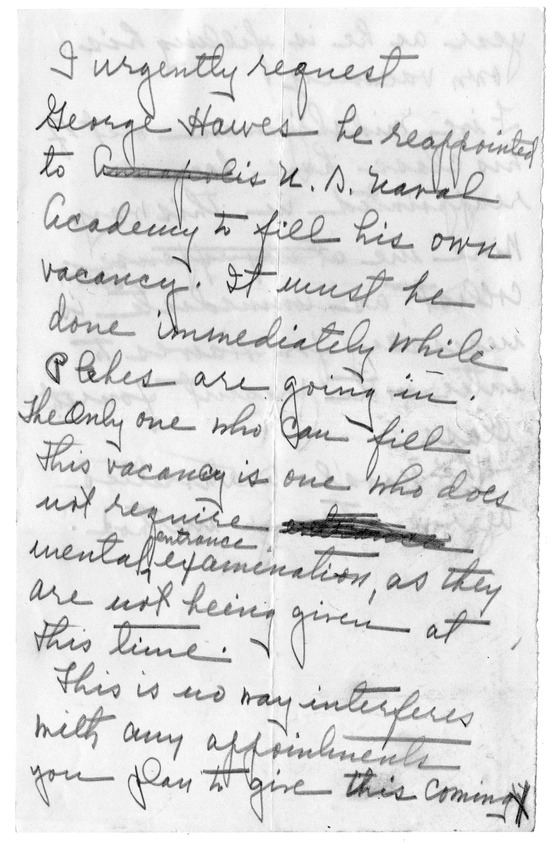 I urgently request
George Hawes be reappointed
to Annapolis U. S. Naval
Academy to fill his own
vacancy. It must be
done immediately while
Plebes are going in.
The Only one who Can fill
This vacancy is one who does
not require entrance
mental entrance examination, as they
are not being given at
This time.
This is no way interferes
with any appointments
you plan to give this coming